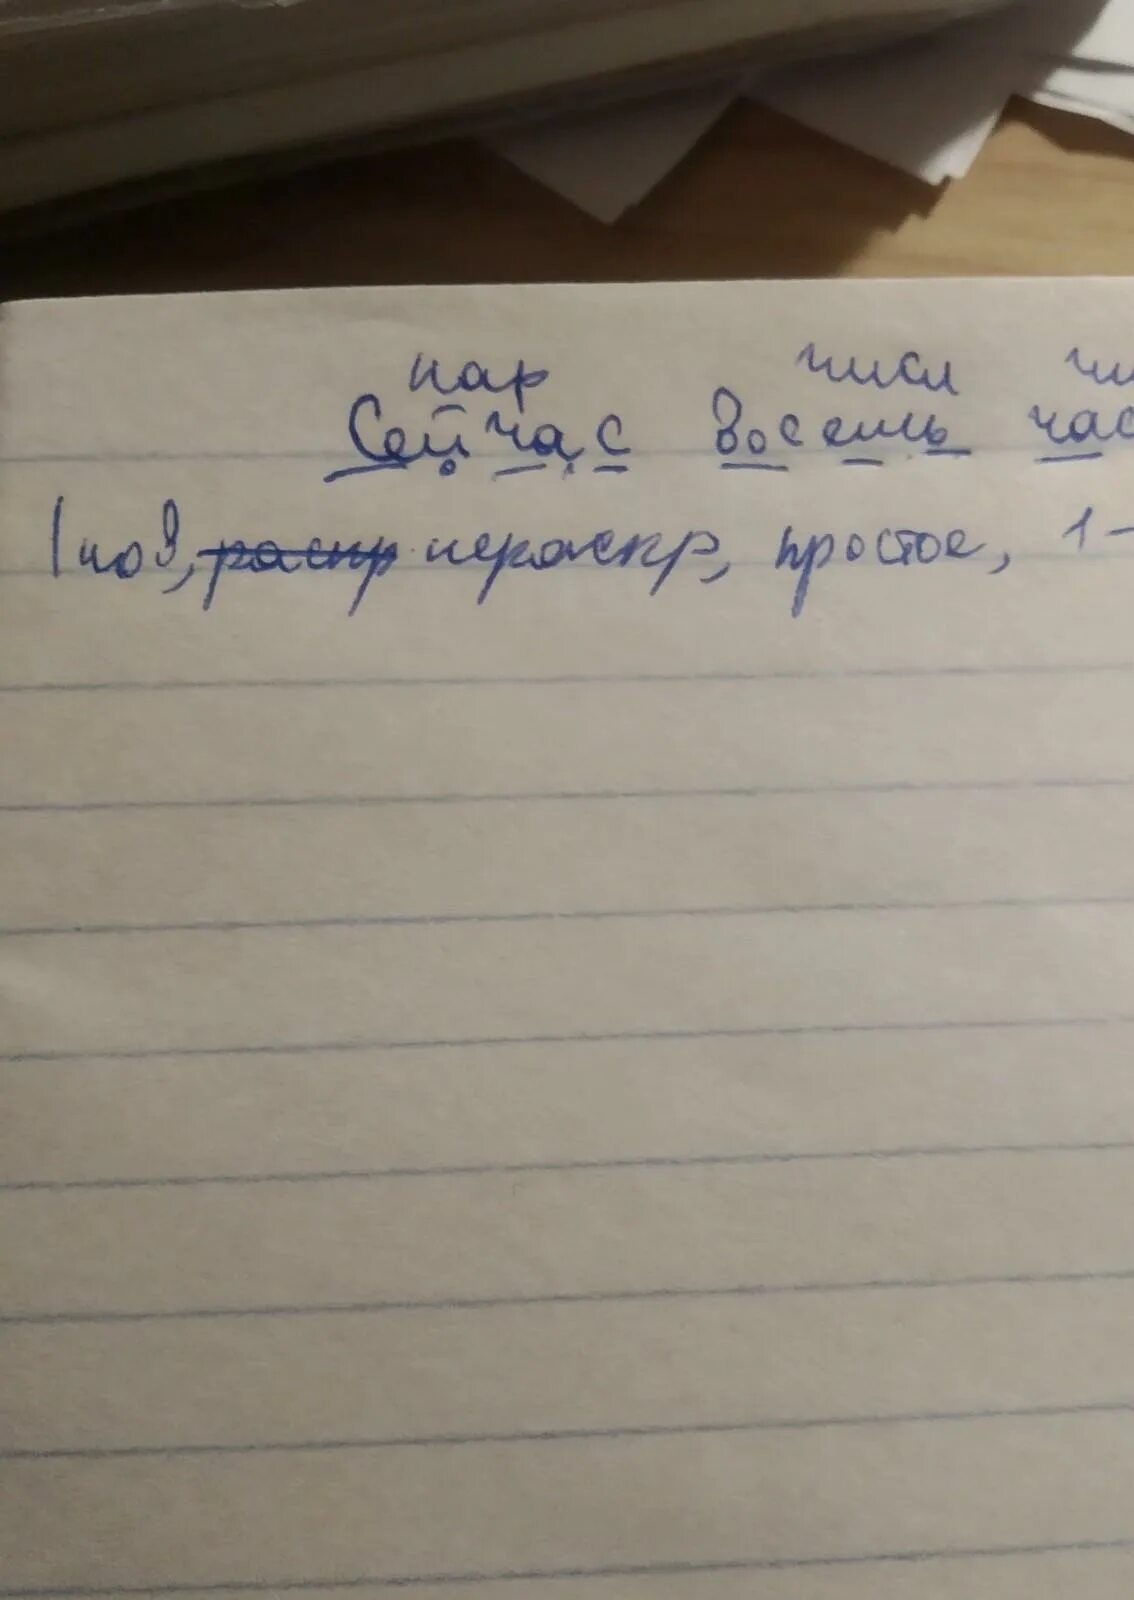 нар числ чи
Сейчас восемь час
пов, распр нераспр, простое, 1-